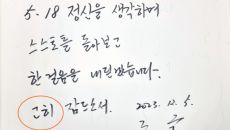 5·18 정신을 생각하며
스스로를 돌아보고
한 걸음을 내딛습니다.
고히 잠드소서.
2023. 12. 5.